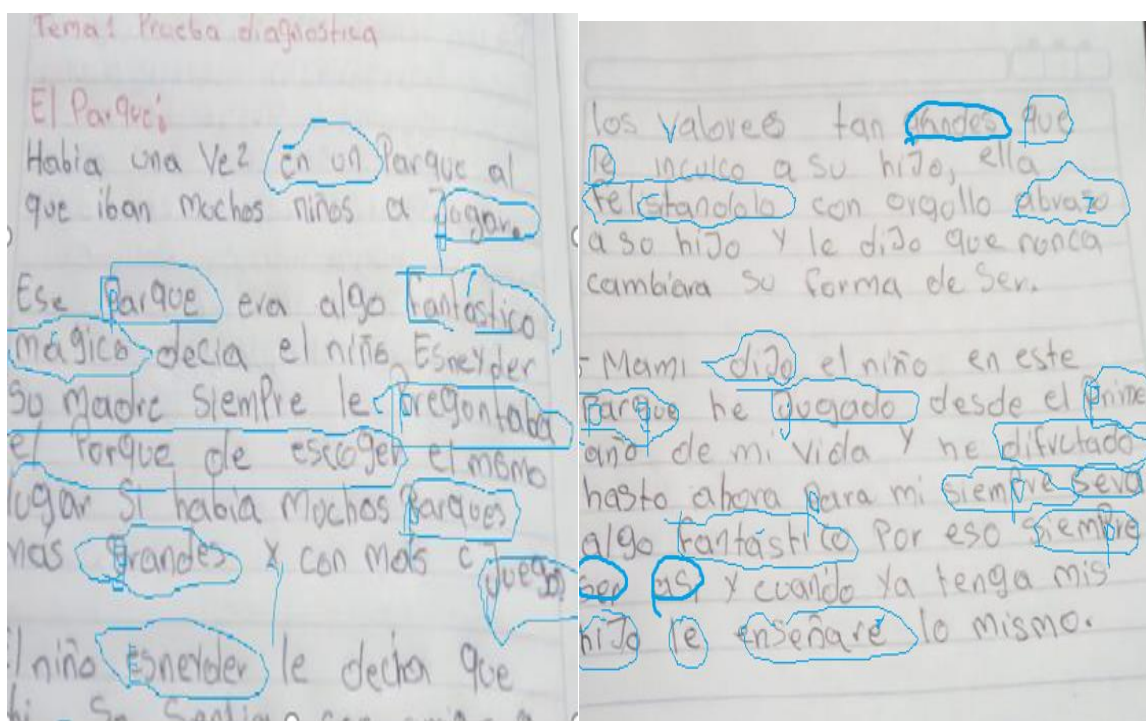 Tema 1 Prueba diagnostica
El Parque:
Habia una vez en un Parque al
que iban muchos niños a Jugar.
Ese Parque era algo fantástico
mágico decia el niño Esneyder
su madre siempre le preguntaba
el Porque de escoger el mismo
lugar si habia muchos Parques
mas grandes y con mas
Juegos
niño Esneyder le decha que
los valores tan que
le inculco a su hiJo, ella
con orgullo abrazo
a su hiJo y le diJo que nunca
cambiara su forma de ser.
- Mami diJo el niño en este
Parque he Jugado desde el Prime
año de mi vida y he difrutado
hasta ahora Para mi siempre sera
algo fantástico Por eso siempre
asi y cuando ya tenga mis
hiJo le enseñaré lo mismo.